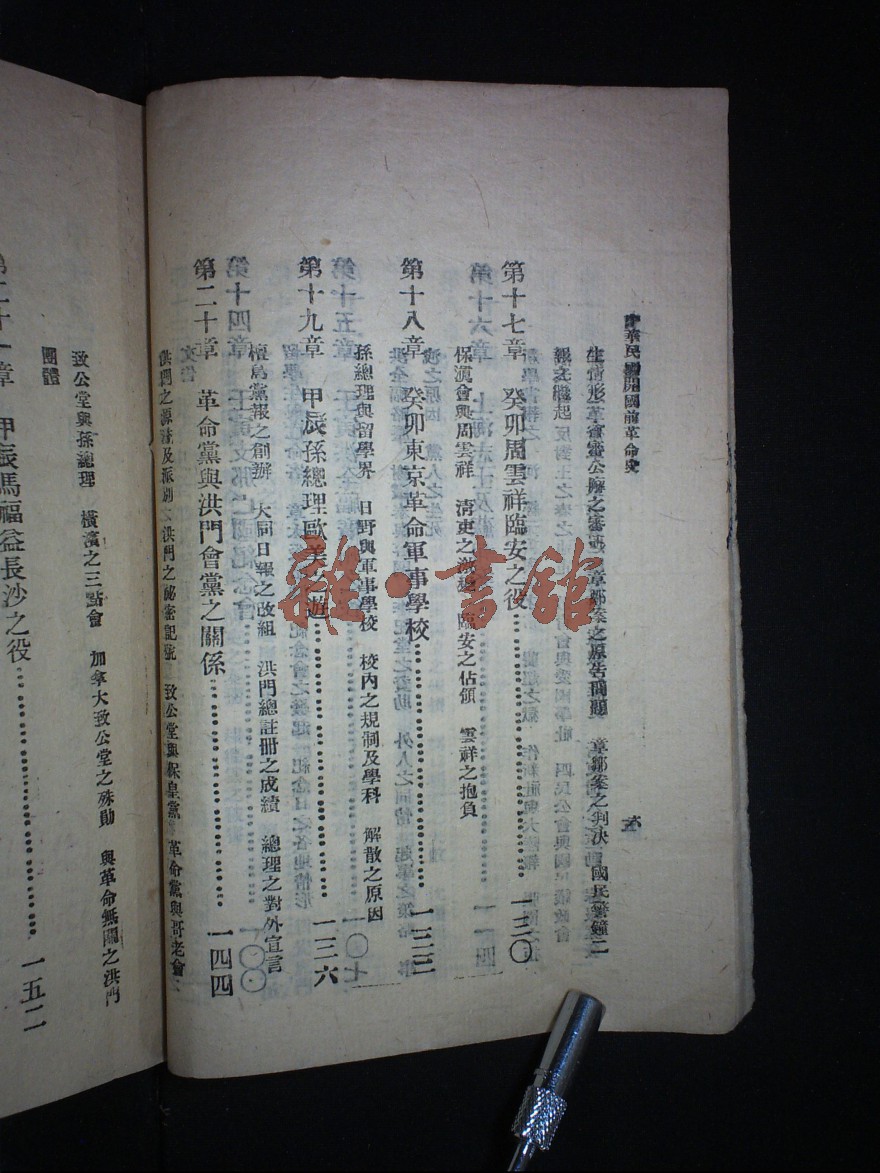 中華民國開國前革命史
生情形 革會審公廨之審訊 章鄒案之原告問題 章鄒案之判決 國民警鐘二
報之繼起 反對王之春之
第十七章 癸卯周雲祥臨安之役 一三〇
保滇會與周雲祥 清吏之激變 臨安之佔領 雲祥之抱負
第十八章 癸卯東京革命軍事學校 一三三
孫總理與留學界 日野與軍事學校 校內之規制及學科 解散之原因
第十九章 甲辰孫總理歐美之遊 一三六
檀島黨報之創辦 大同日報之改組 洪門總註冊之成績 總理之對外宣言
第二十章 革命黨與洪門會黨之關係 一四四
洪門之源流及派別 洪門之秘密記號 致公堂與保皇黨 革命黨與哥老會
致公堂與孫總理 橫濱之三點會 加拿大致公堂之殊勛 與革命無關之洪門
團體
第二十一章 甲辰馬福益長沙之役 一五二
雜·書館